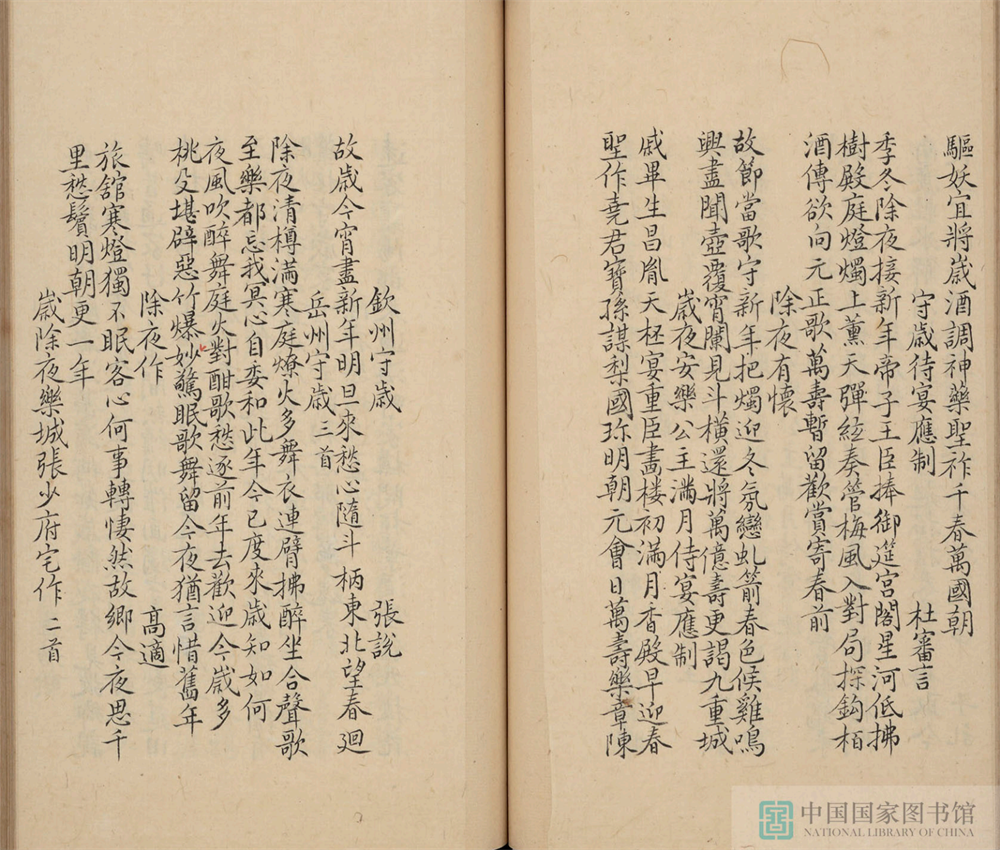 驅妖宜將歲酒調神藥聖祚千春萬國朝
守歲待宴應制 杜審言
季冬除夜接新年帝子王臣捧御筵宮闕星河低拂
樹殿庭燈燭上薰天彈絃奏管梅風入對局探鈎栢
酒傳欲向元正歌萬壽暫留歡賞寄春前
除夜有懷
故節當歌守新年把燭迎冬氛戀虬箭春色候雞鳴
興盡聞壺覆宵闌見斗橫還將萬億壽更謁九重城
歲夜安樂公主滿月侍宴應制
戚畢生昌胤天柸宴重臣畫樓初滿月香殿早迎春
聖作堯君寶孫謀梨國珎明朝元會日萬壽樂章陳
欽州守歲 張說
故歲今宵盡新年明旦來愁心隨斗柄東北望春廻
岳州守歲 三首
除夜清樽滿寒庭燎火多舞衣連臂拂醉坐合聲歌
至樂都忘我冥心自委和此年今已度來歲知如何
夜風吹醉舞庭火對酣歌愁逐前年去歡迎今歲多
桃殳堪辟惡竹爆妙驚眠歌舞留今夜猶言惜舊年
除夜作 高適
旅舘寒燈獨不眠客心何事轉悽然故鄉今夜思千
里愁鬢明朝更一年
歲除夜樂城張少府宅作 二首
中国国家图书馆
NATIONAL LIBRARY OF CHINA